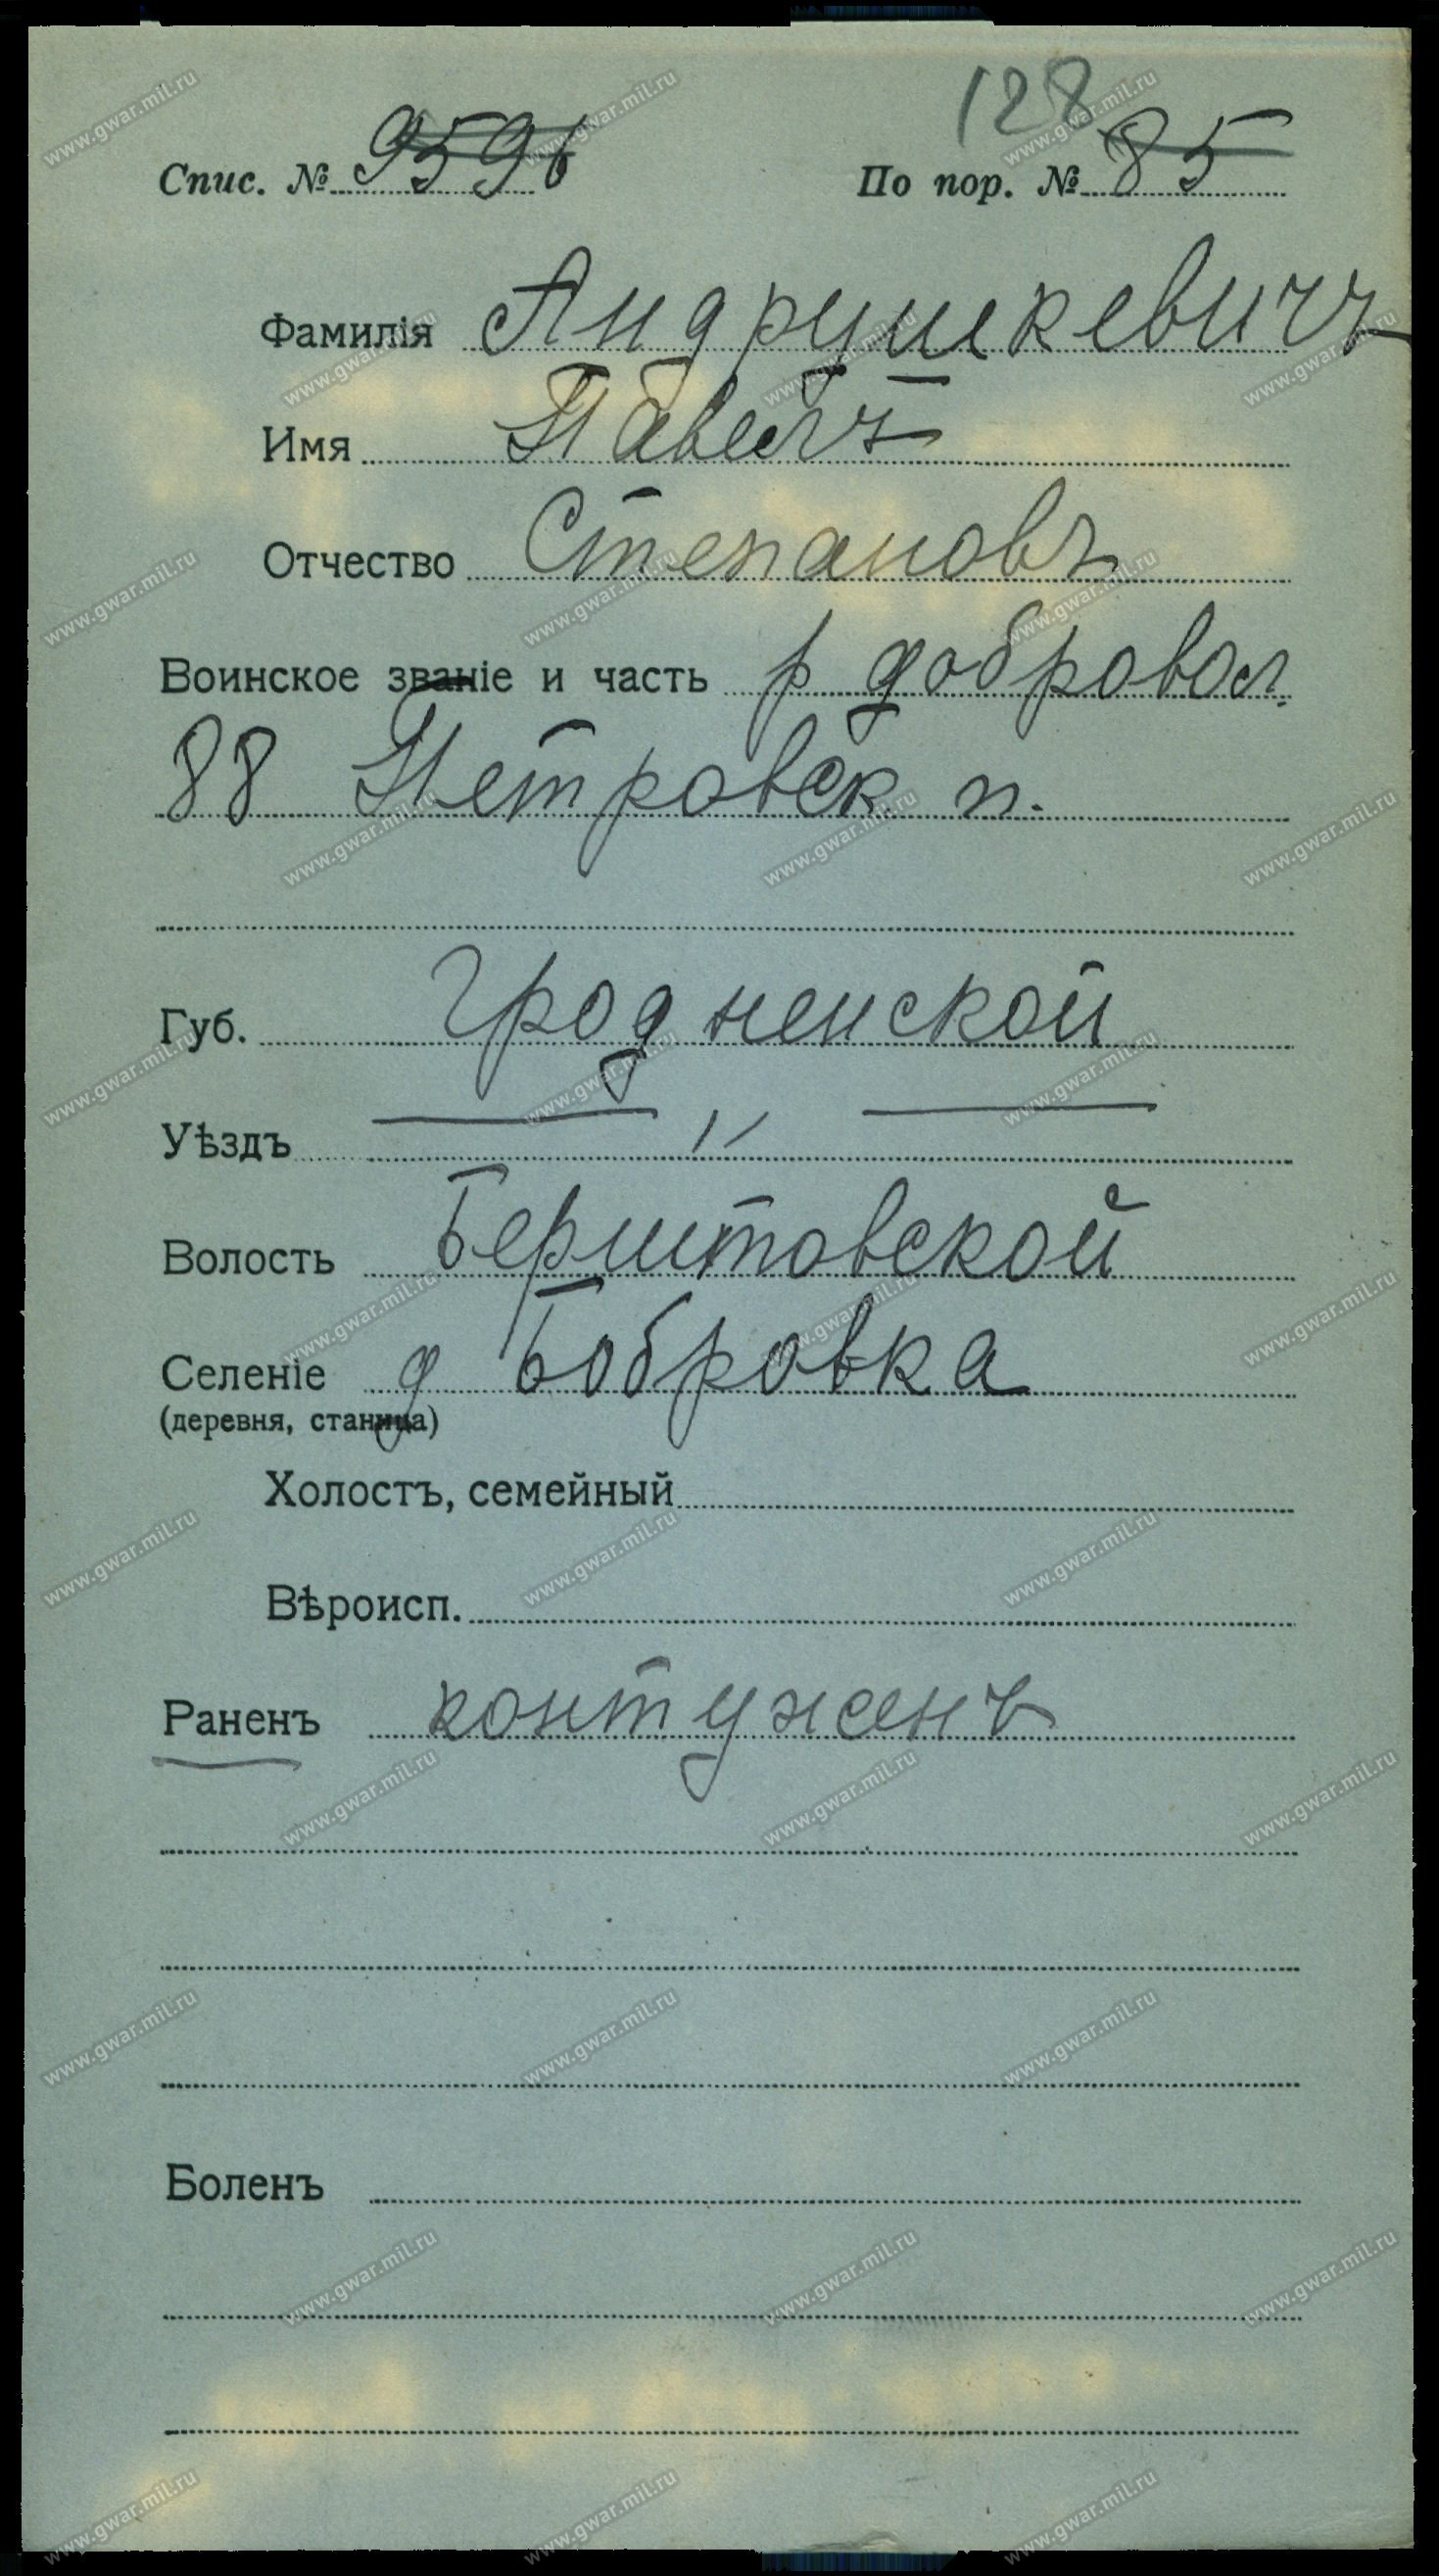 128
Спис. № 9596 По пор. № 85
Фамилія Андрушкевичъ
Имя Павелъ
Отчество Степановъ
Воинское званіе и часть р добровол.
88 Петровск п.
Губ. Гродненской
Уѣздъ — " —
Волость Берштовской
Селеніе д Бобровка
(деревня, станица)
Холостъ, семейный
Вѣроисп.
Раненъ контуженъ
Боленъ
www.gwar.mil.ru